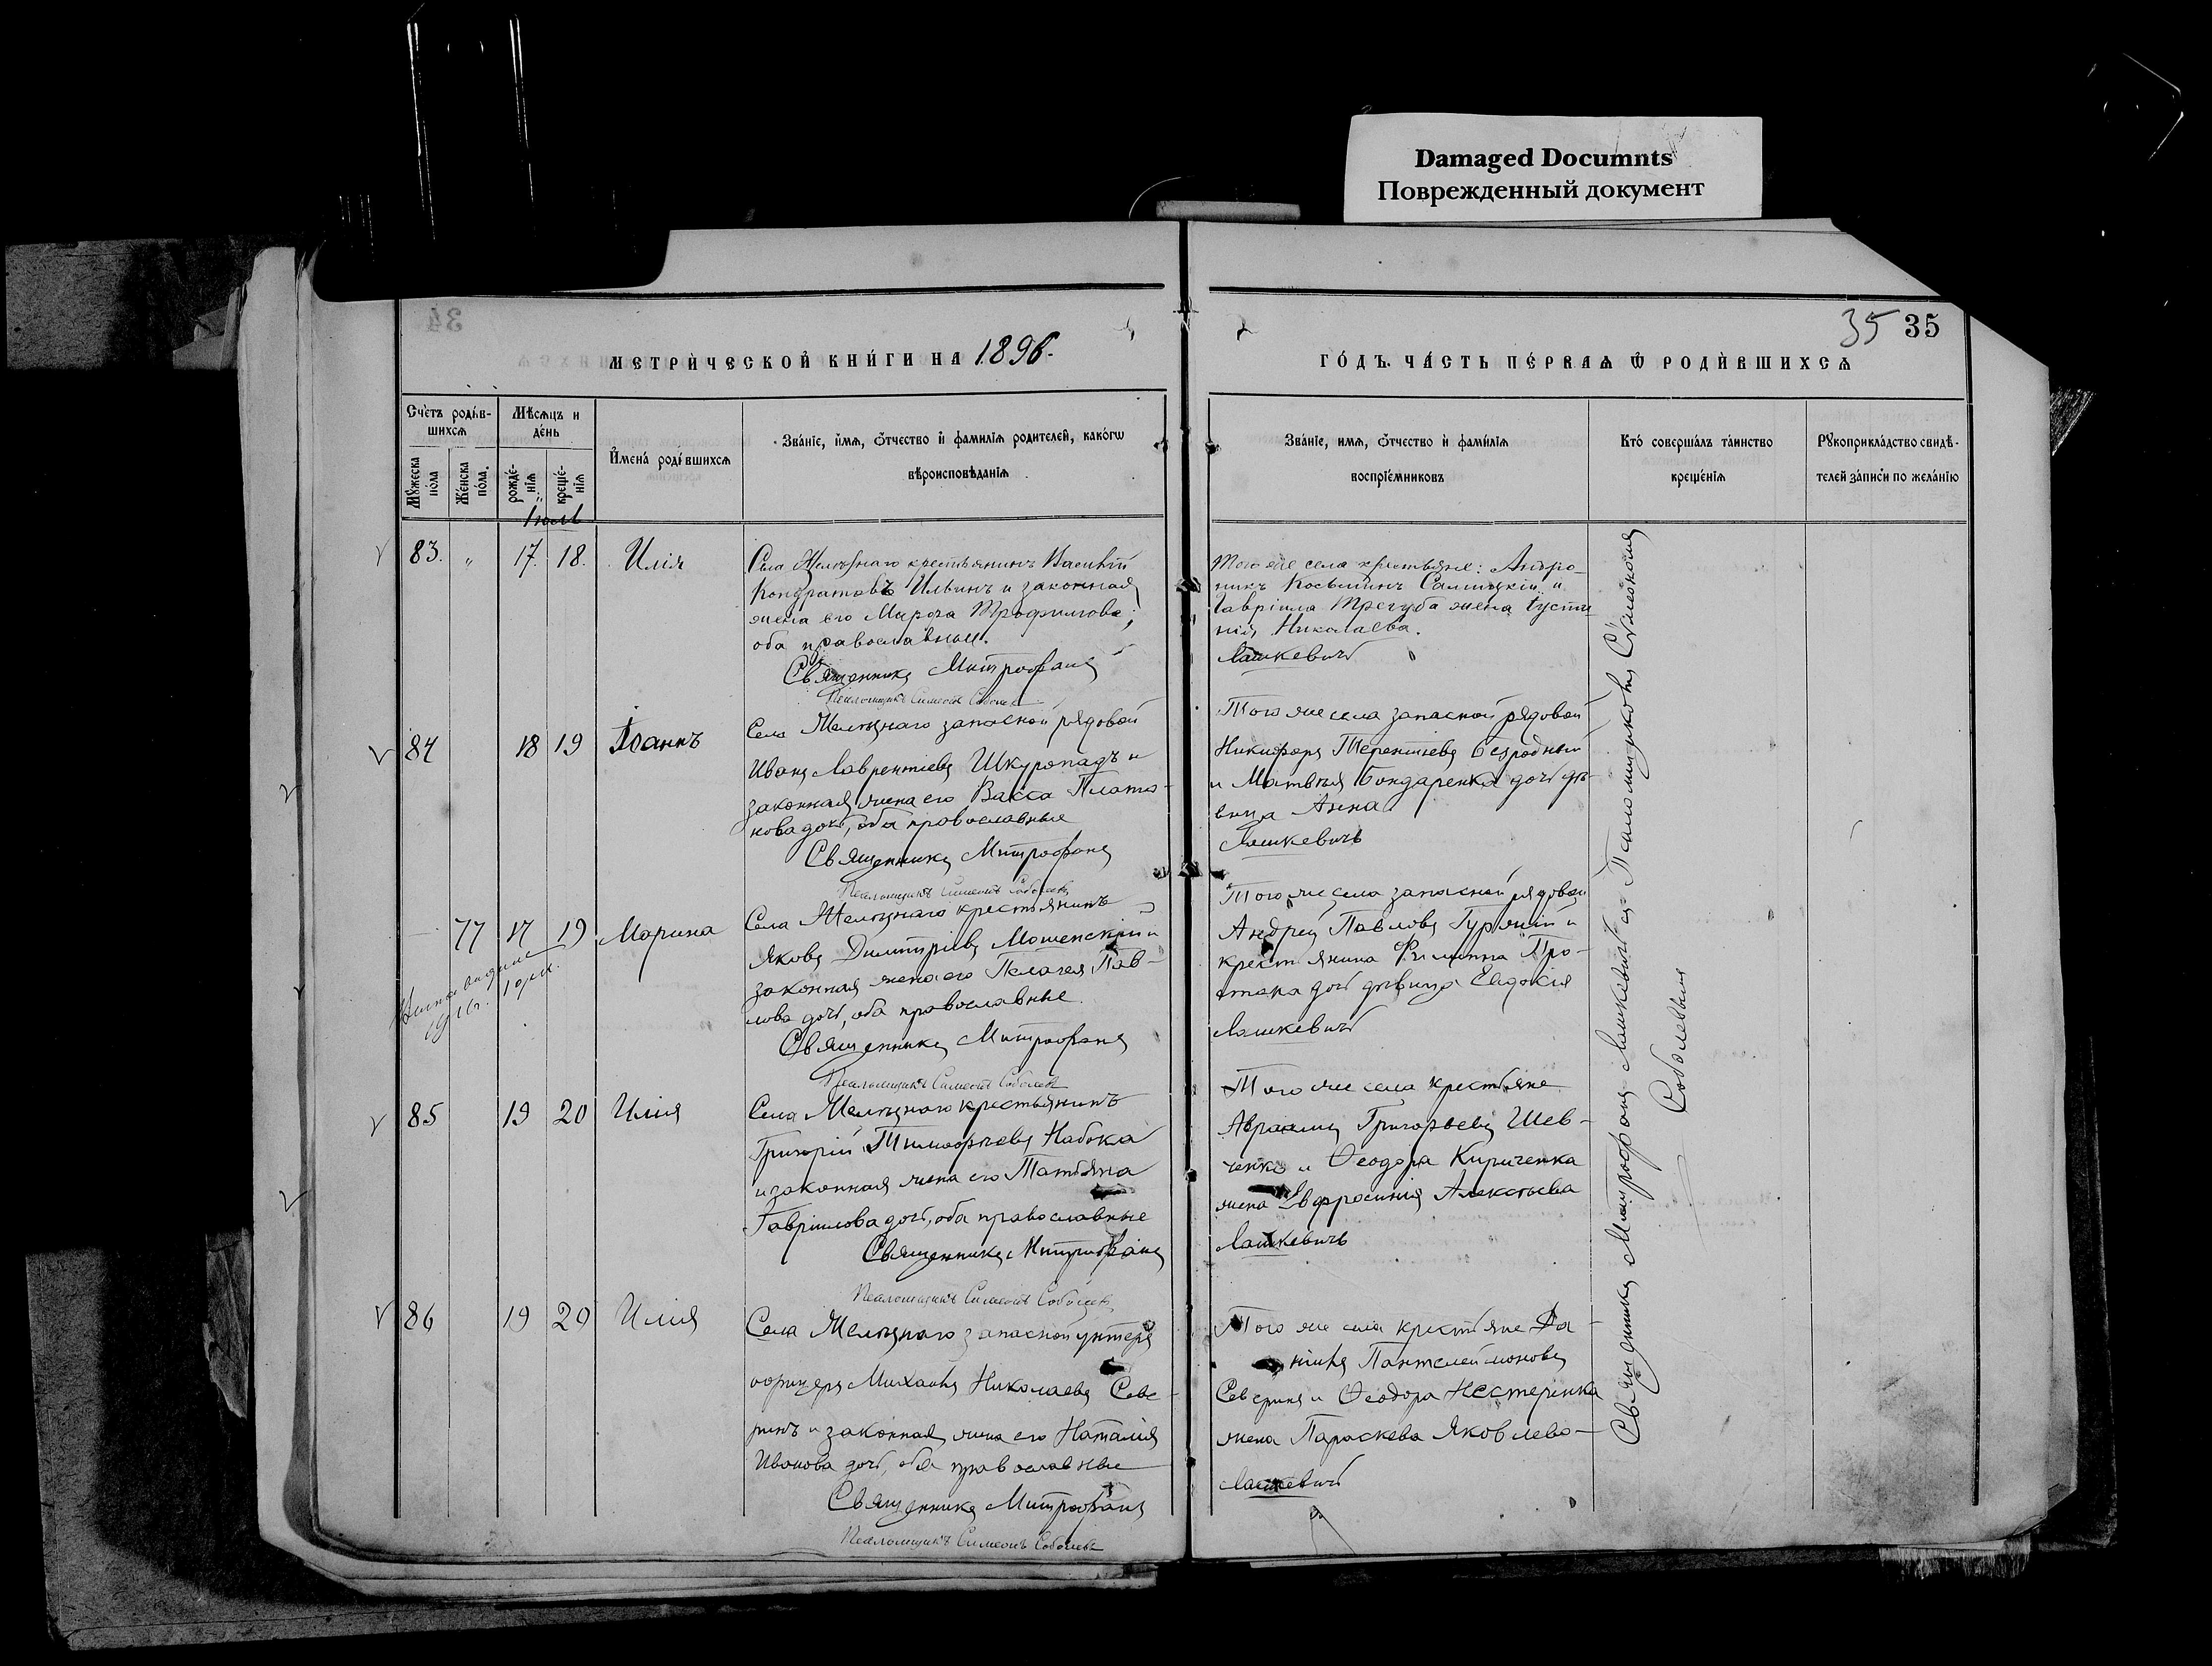 Damaged Documnts
Поврежденный документ
34
35 35
МЕТРИЧЕСКОЙ КНИГИ НА 1896.
ГОДЪ. ЧАСТЬ ПЕРВАЯ Ѡ РОДИВШИХСЯ
Счетъ родив-
шихся
Мужеска
пола
Женска
пола.
Мѣсяцъ и
день
рожде-
нія
креще-
нія
Имена родившихся
Званіе, имя, Ѿчество и фамилія родителей, какогѡ
вѣроисповѣданія
Званіе, имя, Ѿчество и фамилія
воспріемниковъ
Кто совершалъ таинство
крещенія
Рукоприкладство свидѣ-
телей записи по желанію
Іюль
83. " 17. 18. Илія
Села крестьянинъ Василій
Кондратовъ Ильинъ и законная
жена его Трофимова;
оба православные.
Священникъ Митрофанъ
Псаломщикъ Симеонъ Соболевъ
Того же села крестьяне: Андро-
никъ Косьминъ и
Гавріила Трегуба жена Іусти-
нія Николаева.
Лашкевичъ
84 18 19 Іоаннъ
Села запасной рядовой
Иванъ Лаврентіевъ Шкуропадъ и
законная жена его Васса Плато-
нова дочь, оба православные
Священникъ Митрофанъ
Псаломщикъ Симеонъ Соболевъ
Того же села запасной рядовой
Никифоръ Терентіевъ Безродный
и Матвѣя Бондаренка дочь дѣ-
вица Анна
Лашкевичъ
77 17 19 Марина
1916г.
Села крестьянинъ
Яковъ Димитріевъ Мошенскій и
законная жена его Пелагея Пав-
лова дочь, оба православные.
Священникъ Митрофанъ
Псаломщикъ Симеонъ Соболевъ
Того же села запасной рядовой
Андрей Павловъ и
крестьянина Филиппа Про-
дочь дѣвица Евдокія
Лашкевичъ
85 19 20 Илія
Села крестьянинъ
Григорій Тимофѣевъ Набока
и законная жена его Татьяна
Гавріилова дочь, оба православные
Священникъ Митрофанъ
Псаломщикъ Симеонъ Соболевъ
Того же села крестьяне
Авраамъ Григорьевъ Шев-
ченко и Ѳеодора Кириченка
жена Евфросинія Алексѣева
Лашкевичъ
86 19 20 Илія
Села запасной унтеръ
офицеръ Михаилъ Николаевъ Севе-
ринъ и законная жена его Наталія
Иванова дочь, оба православные
Священникъ Митрофанъ
Псаломщикъ Симеонъ Соболевъ
Того же села крестьяне Да-
ніилъ Пантелеймоновъ
Северинъ и Ѳеодора Нестеренка
жена Параскева Яковлева
Лашкевичъ
Священникъ Митрофанъ Лашкевичъ съ Псаломщикомъ Симеономъ
Соболевымъ